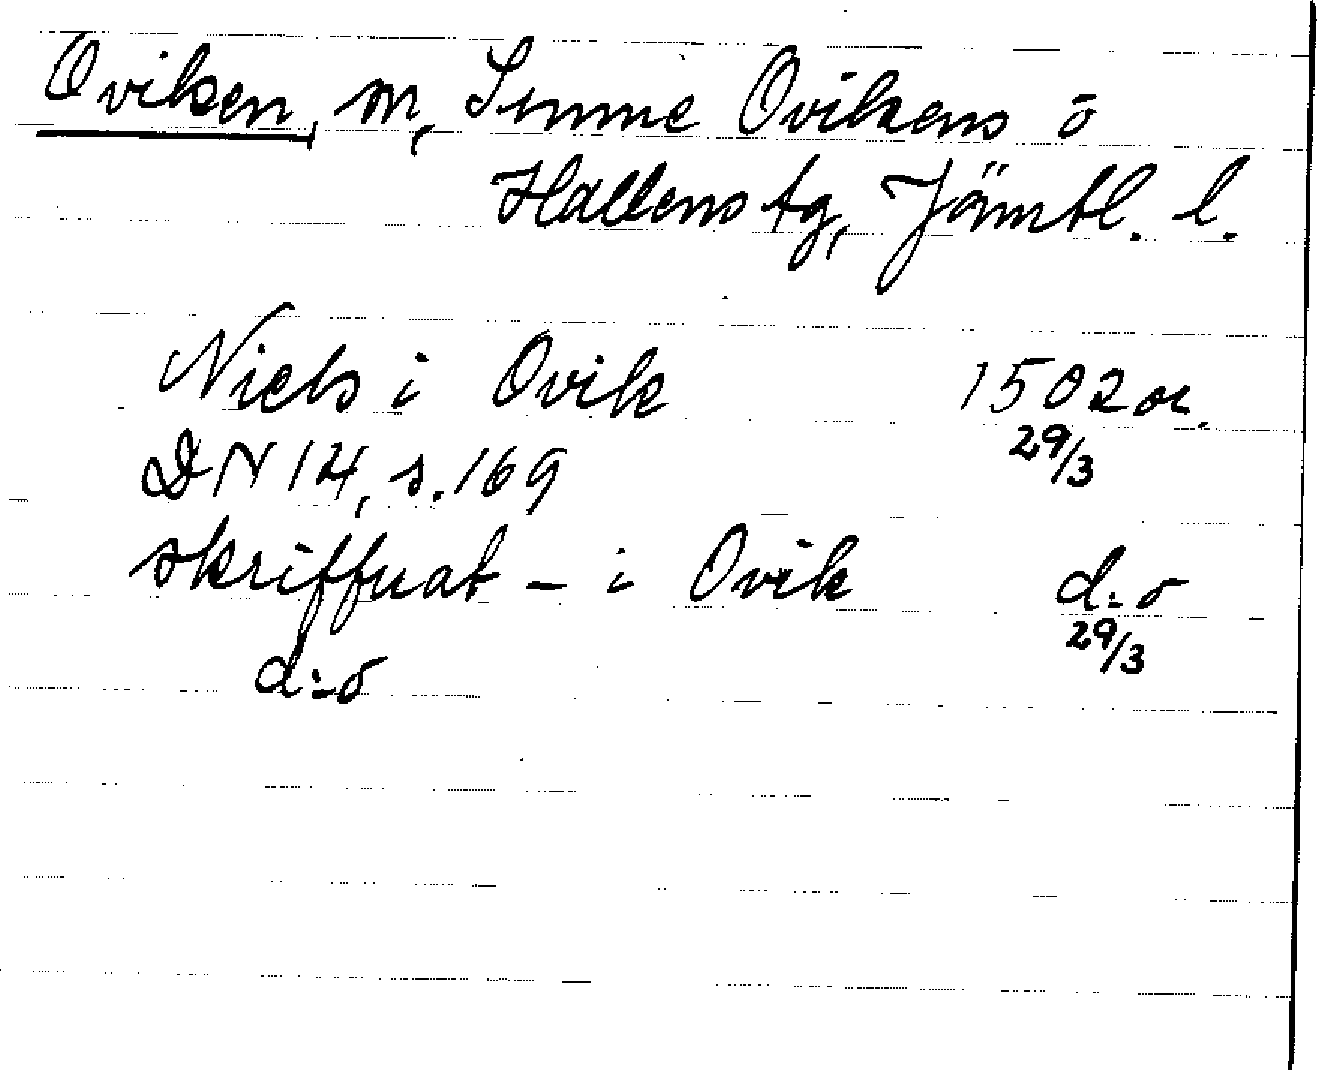 Oviken, sn, Sunne Ovikens o
Hallens tg, Jämtl. l.
Niels i Ovik 1502 or.
29/3
DN 14, s. 169
skriffuat – i Ovik d:o
29/3
d:o